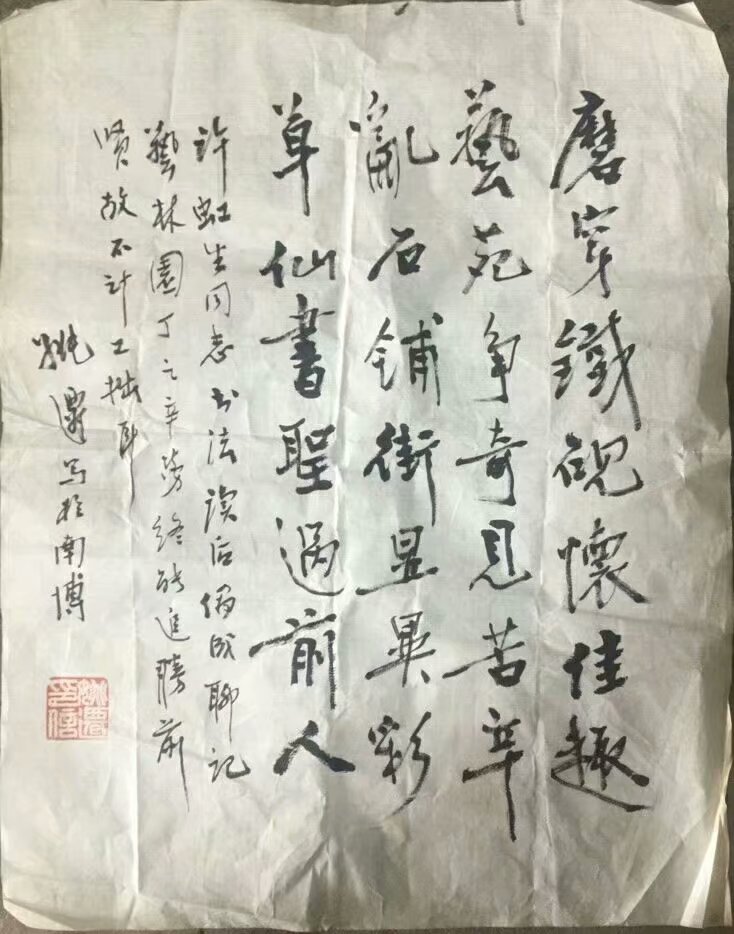 磨穿鐵硯懷佳趣
藝苑争奇見苦辛
亂石铺街显異彩
草仙書聖過前人
許虹生同志书法读后偶成聊记
藝林園丁之辛劳终能追勝前
贤故不计工拙耳
姚遷写於南博
姚遷印信